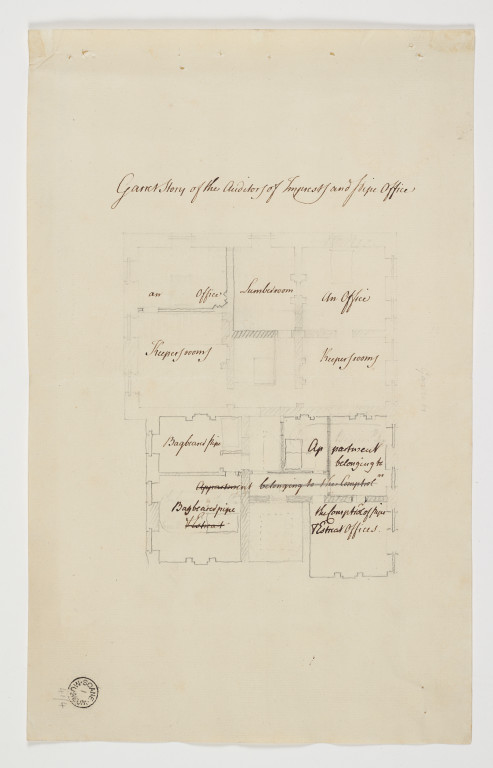 Garret Story of the Auditors of Imprests and Pipe Office
an Office
Lumber room
An Office
Keepers rooms
Keepers rooms
Bagbears pipe
Apartment
belonging to
Appartment belonging to the Comptrol
Bagbears pipe
& Estreat
the Compt of pipe
& Estreat Offices